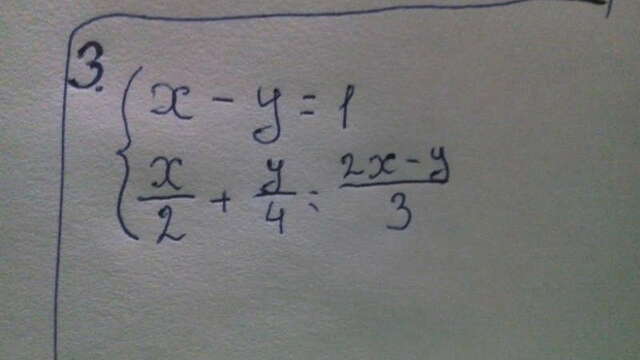 3.
x - y = 1
x/2 + y/4 = (2x - y)/3